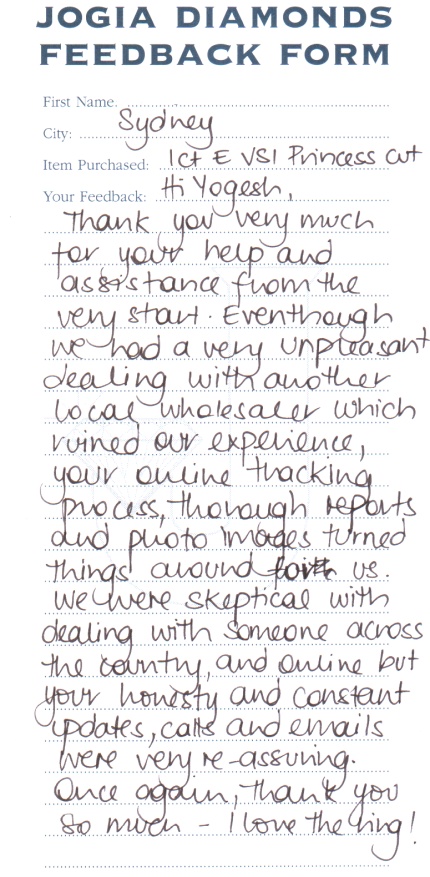 JOGIA DIAMONDS
FEEDBACK FORM
First Name.
City: Sydney
Item Purchased: 1ct E VS1 Princess cut
Your Feedback: Hi Yogesh,
Thank you very much
for your help and
assistance from the
very start. Eventhough
we had a very unpleasant
dealing with another
local wholesaler which
ruined our experience,
your online tracking
process, thorough reports
and photo images turned
things around for us.
We were skeptical with
dealing with someone across
the country, and online but
your honesty and constant
updates, calls and emails
were very re-assuring.
Once again, thank you
so much - I love the ring!